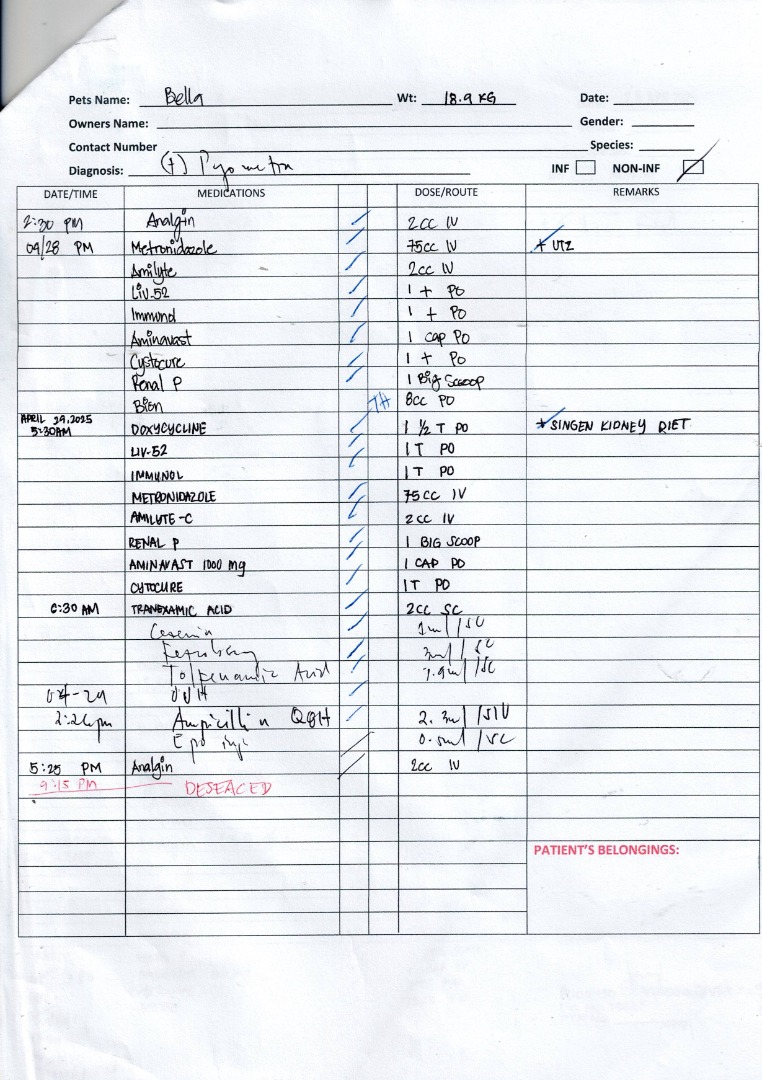 Pets Name: Bella Wt: 18.9 KG Date:
Owners Name: Gender:
Contact Number Species:
Diagnosis: (+) Pyometra INF NON-INF
DATE/TIME MEDICATIONS DOSE/ROUTE REMARKS
2:30 PM Analgin 2cc IV
04/28 PM Metronidazole 75cc IV * UTZ
Amilyte 2cc IV
Liv.52 1 t PO
Immunol 1 t PO
Aminavast 1 cap PO
Cystocure 1 t PO
Renal P 1 Big Scoop
Bien TH 8cc PO
APRIL 29,2025
5:30AM DOXYCYCLINE 1 1/2 T PO * SINGEN KIDNEY DIET
LIV-52 1T PO
IMMUNOL 1T PO
METRONIDAZOLE 75CC IV
AMILUTE-C 2CC IV
RENAL P 1 BIG SCOOP
AMINAVAST 1000 mg 1 CAP PO
CYTOCURE 1T PO
6:30 AM TRANEXAMIC ACID 2CC SC
1ml /SC
3ml / SC
Tolfenamic Acid 1.9ml /SC
04-29
2:26pm Ampicillin Q8H 2.3ml /SIV
Epo inj 0.5ml /SC
5:25 PM Analgin 2cc IV
9:15 PM DESEACED
PATIENT'S BELONGINGS: